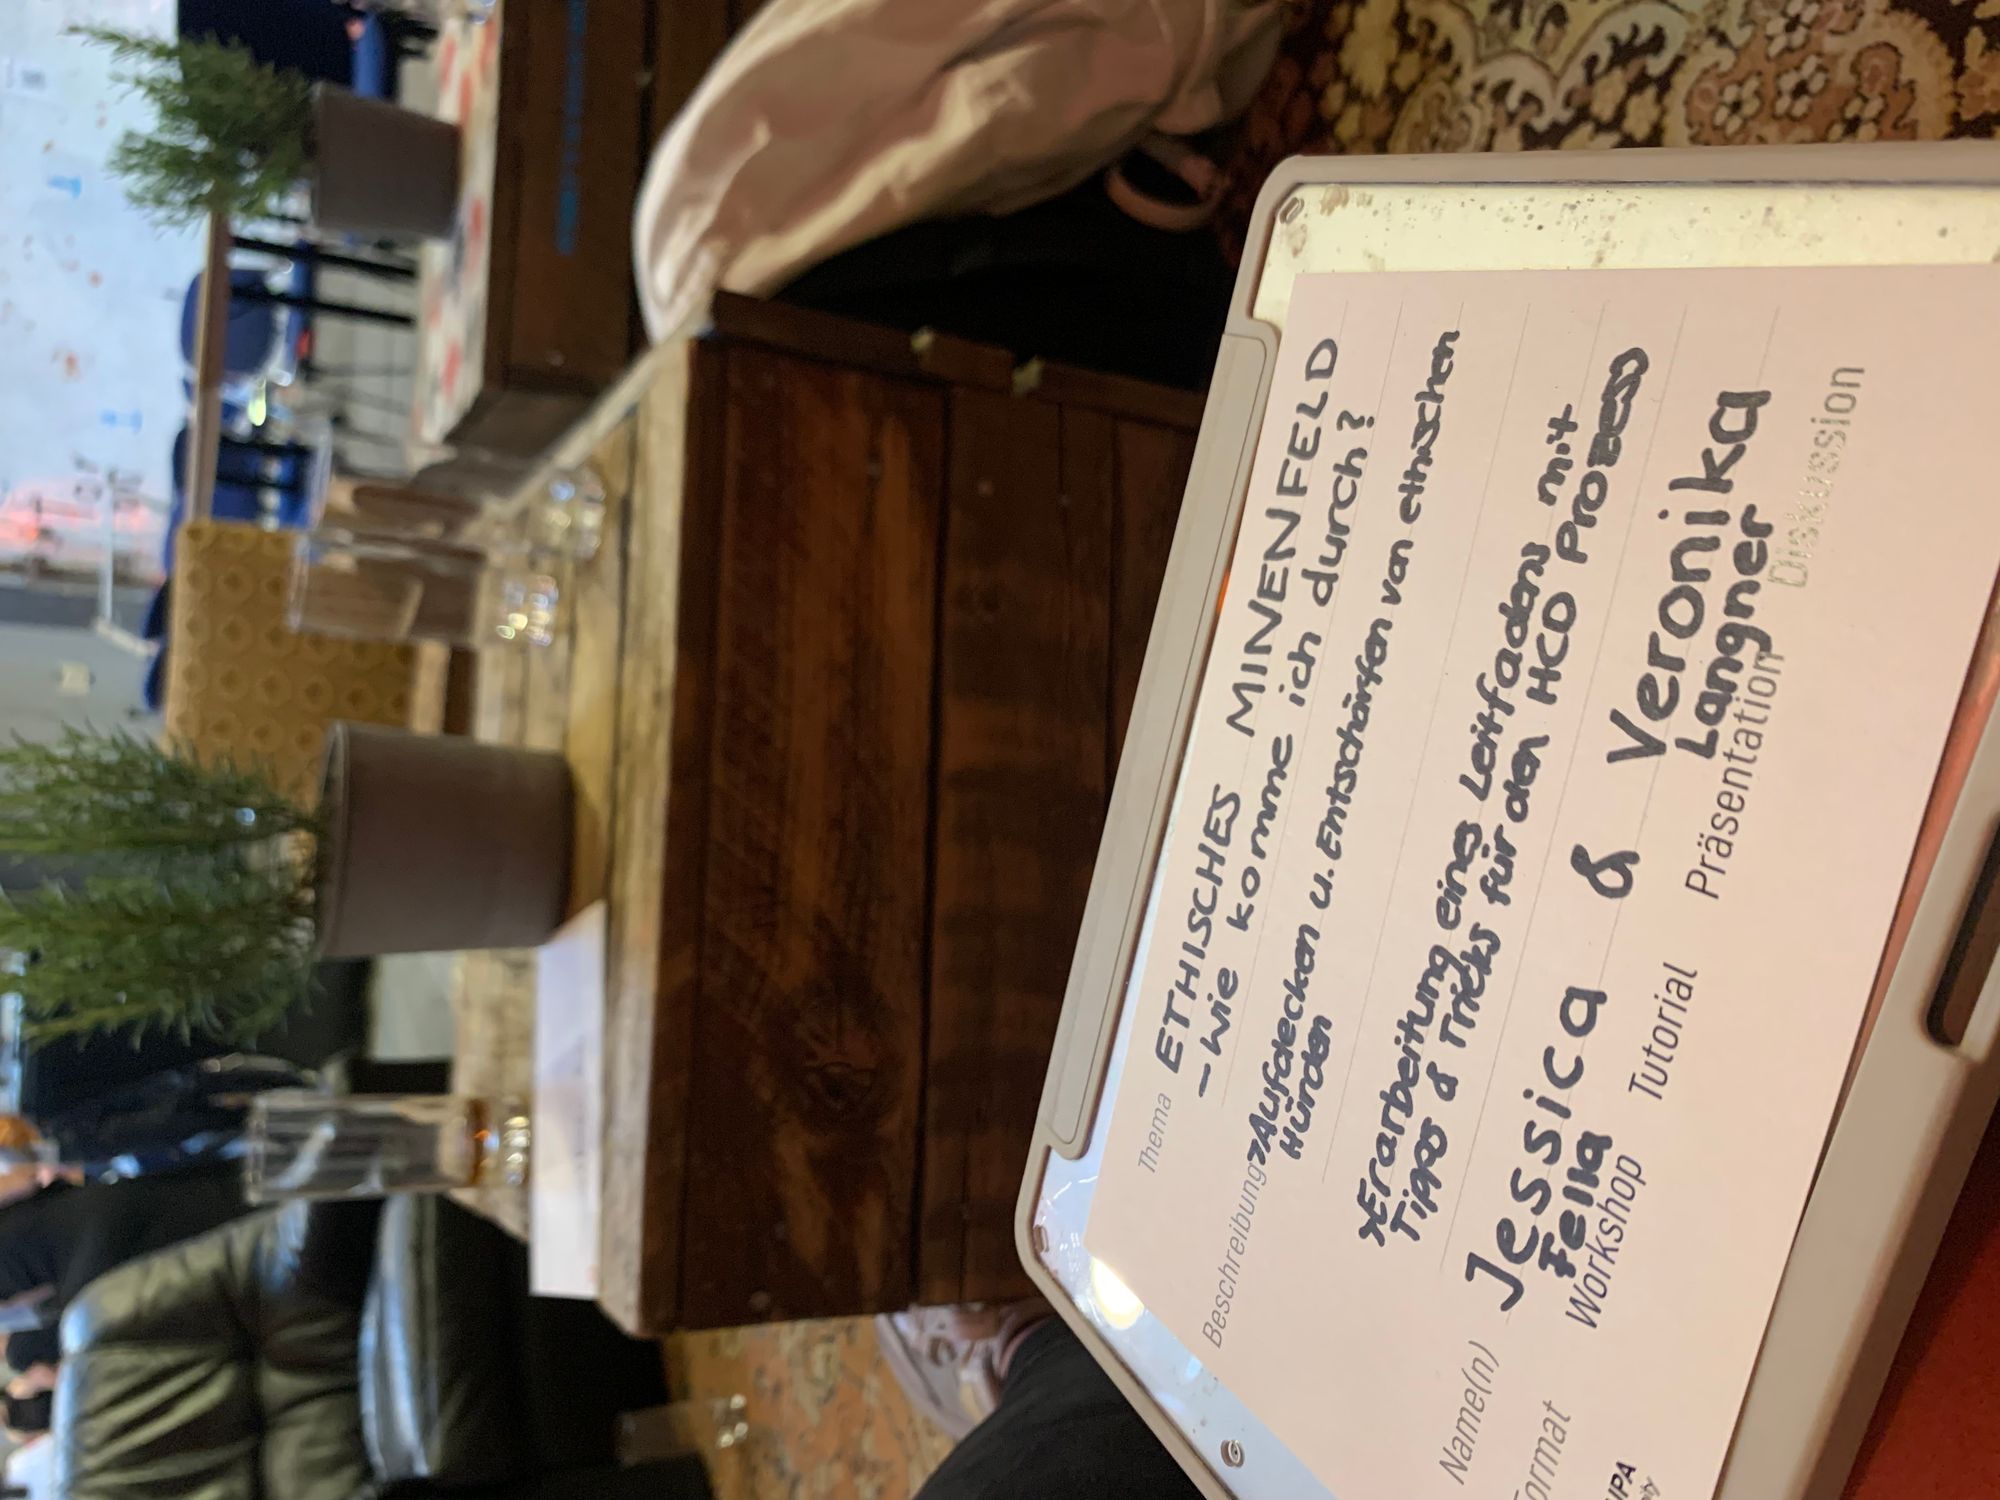 Thema ETHISCHES MINENFELD
- Wie komme ich durch?
Beschreibung >Aufdecken u. Entschärfen von ethischen
Hürden
>Erarbeitung eines Leitfadens mit
Tipps & Tricks für den HCD Prozess
Name(n) Jessica & Veronika
Fella Langner
Format Workshop Tutorial Präsentation Diskussion